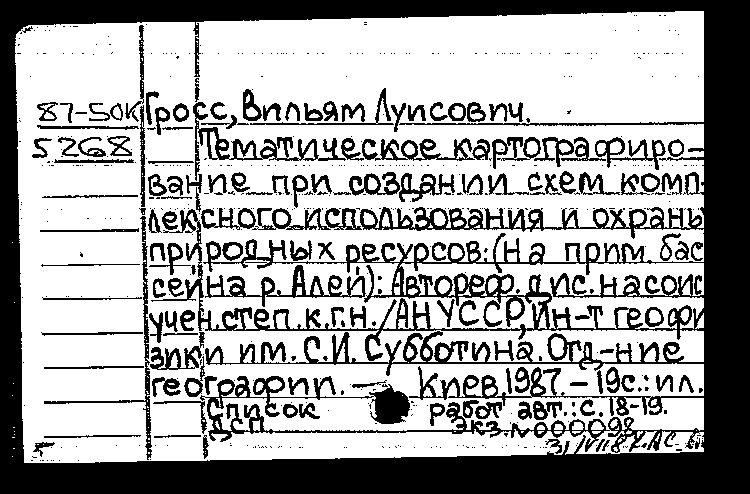 87-50К Гросс, Вильям Луисович.
5268 Тематическое картографиро-
вание при создании схем комп-
лексного использования и охраны
природных ресурсов: (на прим. бас
сейна р. Алей): Автореф. дис. на соис
учен. степ. к.г.н. / АН УССР, Ин-т геофи
зики им. С.И. Субботина. Отд-ние
географии. — Киев, 1987. — 19с.: ил.
Список работ авт.: с. 18-19.
ДСП. Экз. N 000098